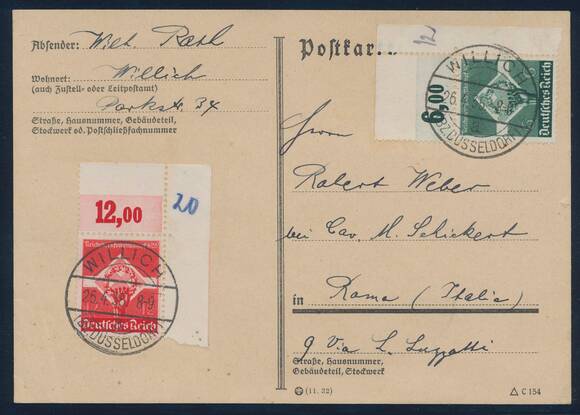 Absender: Wilh. Rasl
Wohnort: Willich
(auch Zustell- oder Leitpostamt)
Parkstr. 34
Straße, Hausnummer, Gebäudeteil,
Stockwerk od. Postschließfachnummer
Postkar
12
6,00
WILLICH
8-9
(BZ. DÜSSELDORF)
Deutsches Reich
12,00
20
WILLICH
26.4.35 8-9
(BZ. DÜSSELDORF)
Deutsches Reich
Herrn
Robert Weber
bei Cav. M. Schickert
in Roma (Italia)
9 Via L. Luzzatti
Straße, Hausnummer,
Gebäudeteil, Stockwerk
(11. 32)
C 154